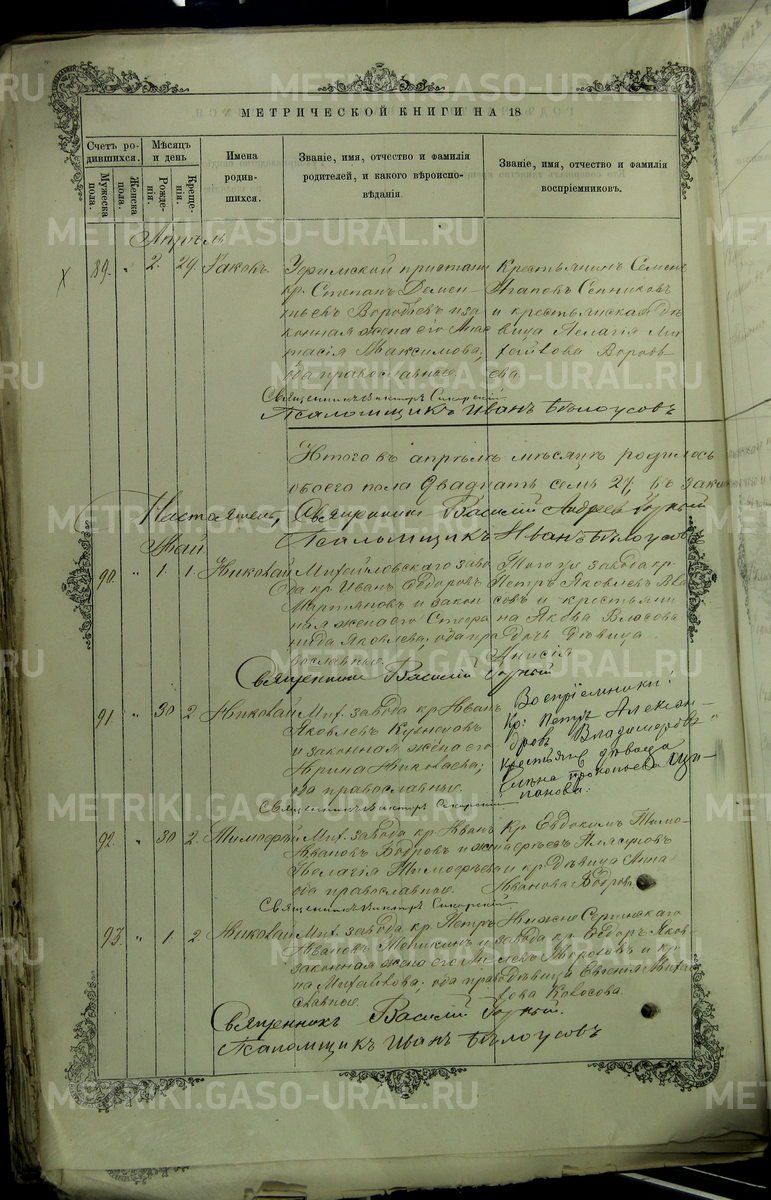 МЕТРИЧЕСКОЙ КНИГИ НА 18
Счетъ ро-
дившихся.
Мужеска
пола.
Женска
пола.
Мѣсяцъ
и день
Рожде-
нія.
Креще-
нія.
Имена
родив-
шихся.
Званіе, имя, отчество и фамилія
родителей, и какого вѣроиспо-
вѣданія.
Званіе, имя, отчество и фамилія
воспріемниковъ.
Апрѣль
89. " 2. 29. Іаковъ.
Уфимской пристани
кр. Степанъ Демен-
тьевъ Воробьевъ и за-
конная жена его Анас-
тасія Максимова;
оба православные.
Крестьянинъ Семенъ
Агаповъ Сенниковъ
и крестьянская дѣ-
вица Пелагія Ми-
хайлова Воробь-
ева
Священникъ Викторъ Сикорскій
Псаломщикъ Иванъ Бѣлоусовъ
Итого въ апрѣлѣ мѣсяцѣ родилось
обоего пола двадцать семь 27,
Настоятель, Священникъ Василій Андреевъ
Псаломщикъ Иванъ Бѣлоусовъ
Май
90. " 1. 1. Николай
Михайловскаго заво-
да кр. Иванъ Ѳедоровъ
Мартьяновъ и закон-
ная жена его Стефа-
нида Яковлева; оба пра-
вославные.
Того же завода кр.
Петръ Яковлевъ
и крестьяни-
на Якова Власова
дочь дѣвица
Анисія
Священникъ Василій
91 " 30 2. Николай
Мих. завода кр. Иванъ
Яковлевъ
и законная жена его
Ирина Николаева;
оба православные.
Воспріемники:
Кр. Петръ Алексан-
дровъ Владиміровъ
крестьян. дѣвица
Прокопьева
Священникъ Викторъ Сикорскій
92. " 30 2. Тимофей
Мих. завода кр. Иванъ
Ивановъ Бобровъ и жена
Пелагія Тимофѣева
оба православные.
Кр. Евдокимъ Тимо-
фѣевъ Плясуновъ
и кр. дѣвица Анна
Иванова Бобров.
Священникъ Викторъ Сикорскій
93. " 1 2 Николай
Мих. завода кр. Петръ
Ивановъ и
законная жена его
Михайлова; оба право-
славные.
Нижне Сергинскаго
завода кр. Ѳедоръ Яков-
левъ и кр.
дѣвица Евгенія Михай-
лова Колосова.
Священникъ Василій
Псаломщикъ Иванъ Бѣлоусовъ
METRIKI.GASO-URAL.RU